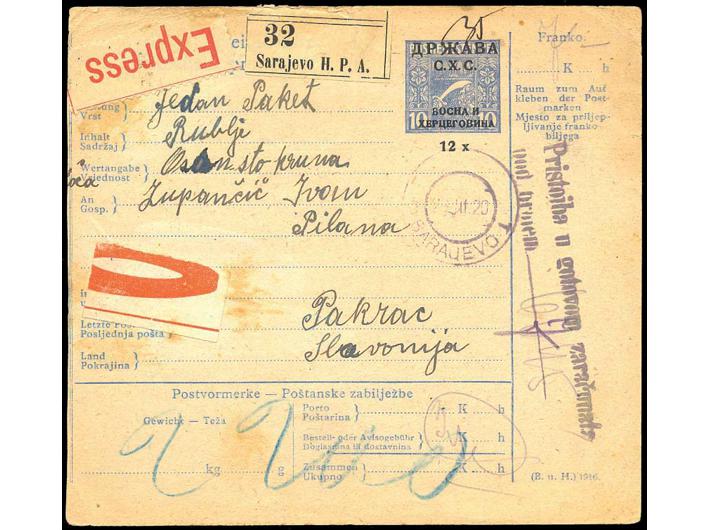 Express
32
Sarajevo H. P. A.
ДРЖАВА
С.Х.С.
БОСНА И
ХЕРЦЕГОВИНА
10 10
12 x
Franko:
K h
Raum zum Auf
kleben der Post-
marken
Mjesto za priljep-
ljivanje franko-
biljega
Vrst
Jedan Paket
Inhalt
Sadržaj
Rublje
Wertangabe
Vrijednost
Osam sto kruna
An
Gosp.
Zupančić Ivan
Pilana
SARAJEVO 1
Pristojba u
pod brojem
Letzte Post
Posljednja pošta
Pakrac
Land
Pokrajina
Slavonija
Postvormerke – Poštanske zabilježbe
Gewicht – Teža
kg g
Porto
Poštarina
K h
Bestell- oder Avisogebühr
Doglasnina ili dostavnina
K h
Zusammen
Ukupno
K h
(B. u. H.) 1916.